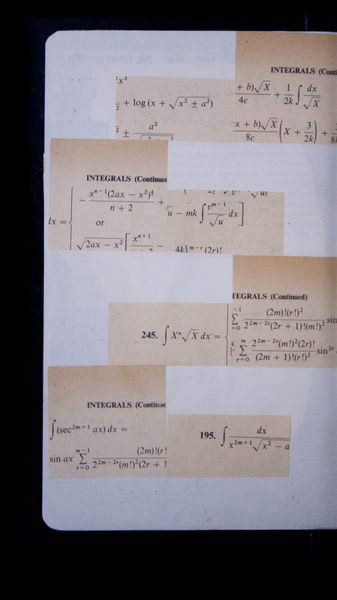 INTEGRALS (Conti
+ b)√X / 4c + 1/2k ∫ dx/√X
+ log (x + √x² ± a²)
± a²
x + b)√X / 8c (X + 3/2k) +
INTEGRALS (Continued
− xⁿ⁻¹(2ax − x²)³ / n + 2 +
dx =
or
√2ax − x² [ xⁿ⁺¹
u − mk ∫ vᵐ⁻¹/√u dx ]
4k)ᵐ⁻ʳ(2r)!
TEGRALS (Continued)
Σ (2m)!(r!)² / 2²ᵐ⁻²ʳ(2r + 1)!(m!)² sin
245. ∫ Xⁿ√X dx =
Σ r=0 m 2²ᵐ⁻²ʳ(m!)²(2r)! / (2m + 1)!(r!)² sin²ʳ
INTEGRALS (Continue
∫ (sec²ᵐ⁺¹ ax) dx =
sin ax Σ r=0 m−1 (2m)!(r! / 2²ᵐ⁻²ʳ(m!)²(2r + 1
195. ∫ dx / x²ᵐ⁺¹ √x² − a